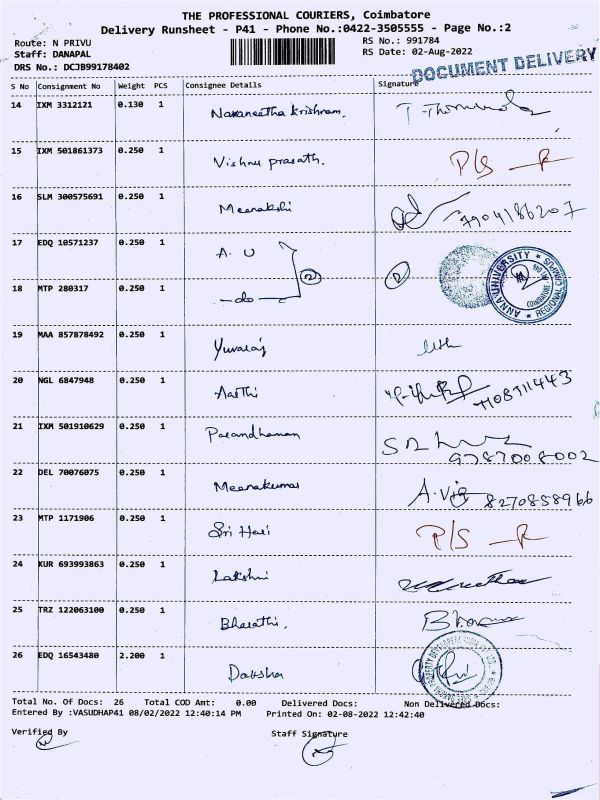 THE PROFESSIONAL COURIERS, Coimbatore
Delivery Runsheet - P41 - Phone No.:0422-3505555 - Page No.:2
Route: N PRIVU
RS No.: 991784
Staff: DANAPAL
RS Date: 02-Aug-2022
DRS No.: DCJB99178402
DOCUMENT DELIVERY
S No Consignment No Weight PCS Consignee Details Signature
14 IXM 3312121 0.130 1 Navaneetha krishnan.
15 IXM 501861373 0.250 1 Vishnu prasath. P/S
16 SLM 300575691 0.250 1 Meenakshi 7904186207
17 EDQ 10571237 0.250 1 A. U
18 MTP 280317 0.250 1 -do- 2
ANNA UNIVERSITY REGIONAL CAMPUS COIMBATORE
19 MAA 857878492 0.250 1 Yuvaraj
20 NGL 6847948 0.250 1 Aarthi
21 IXM 501910629 0.250 1 Parandhaman 9787008002
22 DEL 70076075 0.250 1 Meenakumar A.Vij 8270858966
23 MTP 1171906 0.250 1 Sri Hari P/S
24 KUR 693993863 0.250 1 Lakshmi
25 TRZ 122063100 0.250 1 Bharathi.
26 EDQ 16543480 2.200 1 Daksha
Total No. Of Docs: 26 Total COD Amt: 0.00 Delivered Docs: Non Delivered Docs:
Entered By :VASUDHAP41 08/02/2022 12:40:14 PM Printed On: 02-08-2022 12:42:40
Verified By
Staff Signature